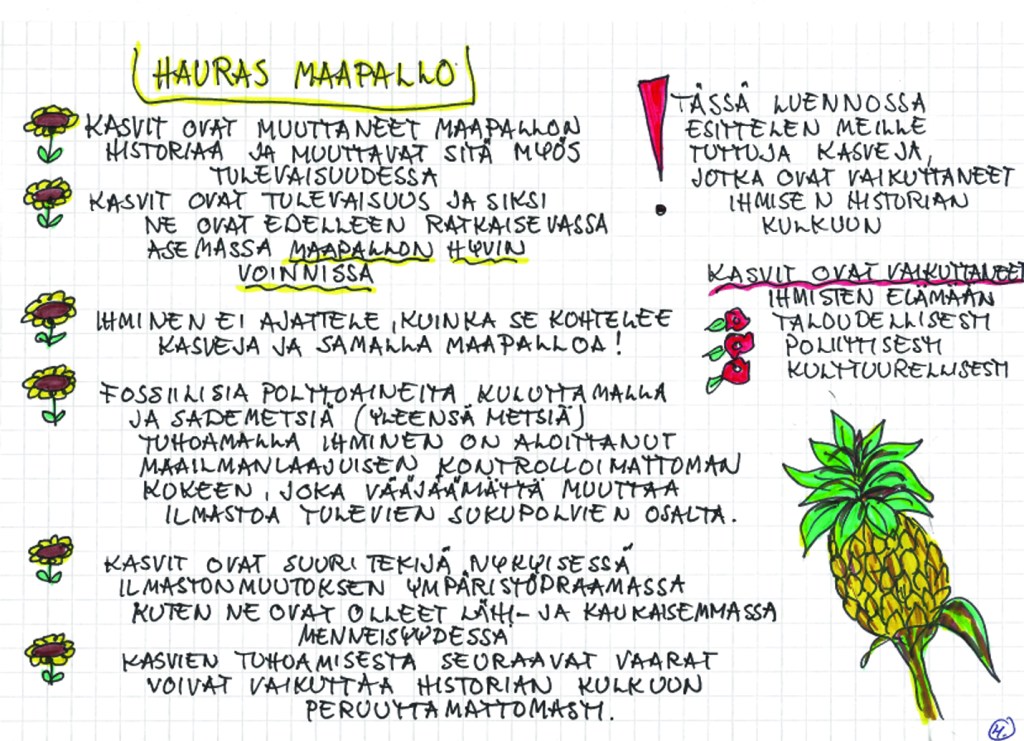 HAURAS MAAPALLO
KASVIT OVAT MUUTTANEET MAAPALLON
HISTORIAA JA MUUTTAVAT SITÄ MYÖS
TULEVAISUUDESSA
KASVIT OVAT TULEVAISUUS JA SIKSI
NE OVAT EDELLEEN RATKAISEVASSA
ASEMASSA MAAPALLON HYVIN
VOINNISSA
IHMINEN EI AJATTELE, KUINKA SE KOHTELEE
KASVEJA JA SAMALLA MAAPALLOA!
FOSSIILISIA POLTTOAINEITA KULUTTAMALLA
JA SADEMETSIÄ (YLEENSÄ METSIÄ)
TUHOAMALLA IHMINEN ON ALOITTANUT
MAAILMANLAAJUISEN KONTROLLOIMATTOMAN
KOKEEN, JOKA VÄÄJÄÄMÄTTÄ MUUTTAA
ILMASTOA TULEVIEN SUKUPOLVIEN OSALTA.
KASVIT OVAT SUURI TEKIJÄ NYKYISESSÄ
ILMASTONMUUTOKSEN YMPÄRISTÖDRAAMASSA
KUTEN NE OVAT OLLEET LÄHI- JA KAUKAISEMMASSA
MENNEISYYDESSÄ
KASVIEN TUHOAMISESTA SEURAAVAT VAARAT
VOIVAT VAIKUTTAA HISTORIAN KULKUUN
PERUUTTAMATTOMASTI.
! TÄSSÄ LUENNOSSA
ESITTELEN MEILLE
TUTTUJA KASVEJA,
JOTKA OVAT VAIKUTTANEET
IHMISEN HISTORIAN
KULKUUN
KASVIT OVAT VAIKUTTANEET
IHMISTEN ELÄMÄÄN
TALOUDELLISESTI
POLIITTISESTI
KULTTUURELLISESTI
4.